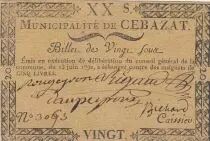 XX S.
MUNICIPALITÉ DE CEBAZAT.
Billet de Vingt sous
Émis en exécution de délibération du conseil général de la
commune, du 12 juin 1792, à échanger contre des assignats de
CINQ LIVRES.
20
20
No. 3063
Caissier
VINGT.